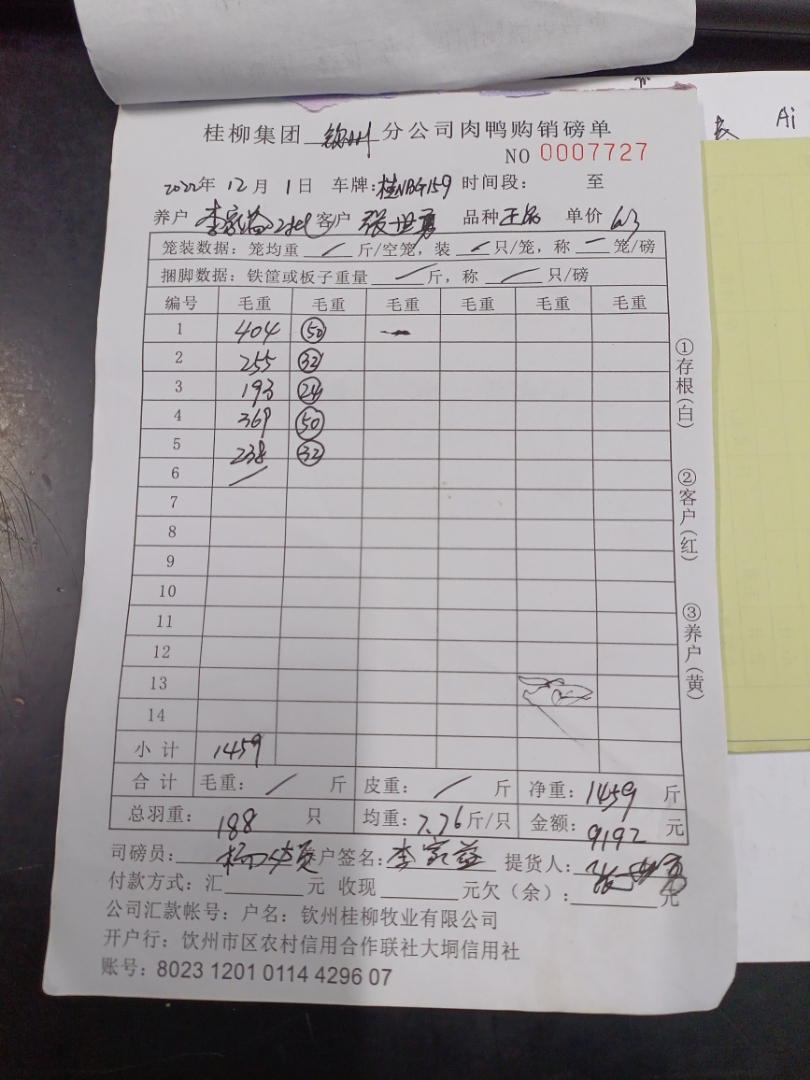 Ai
桂柳集团 钦州 分公司肉鸭购销磅单
NO 0007727
2022年 12月 1日 车牌:桂NBG159 时间段: 至
养户 李家益2批 客户 张世勇 品种 正品 单价 6.3
笼装数据: 笼均重 / 斤/空笼, 装 / 只/笼, 称 一 笼/磅
捆脚数据: 铁筐或板子重量 / 斤, 称 / 只/磅
编号 毛重 毛重 毛重 毛重 毛重 毛重
1 404 50 一
2 255 32
3 193 24
4 369 50
5 238 32
6 /
7
8
9
10
11
12
13
14
小计 1459
合计 毛重: / 斤 皮重: / 斤 净重: 1459 斤
总羽重: 188 只 均重: 7.76斤/只 金额: 9192 元
司磅员: 户签名: 李家益 提货人: 张世勇
付款方式: 汇 元 收现 元欠(余): 元
公司汇款帐号: 户名: 钦州桂柳牧业有限公司
开户行: 饮州市区农村信用合作联社大垌信用社
账号: 8023 1201 0114 4296 07
①存根(白)
②客户(红)
③养户(黄)